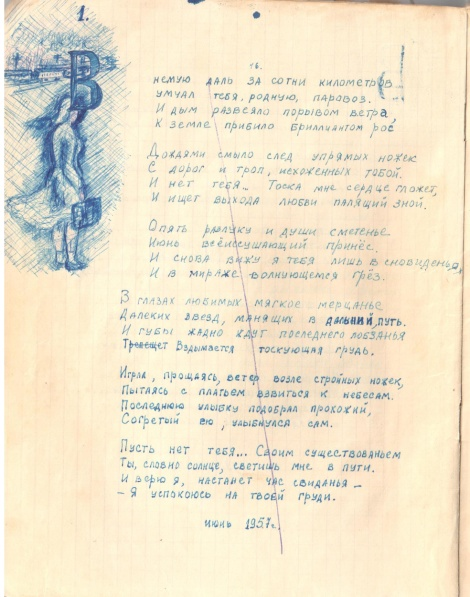 1.
16.
В
немую даль за сотни километров
умчал тебя, родную, паровоз.
И дым развеяло порывом ветра,
К земле прибило бриллиантом рос

Дождями смыло след упрямых ножек
С дорог и троп, исхоженных тобой.
И нет тебя... Тоска мне сердце гложет,
И ищет выхода любви палящий зной.

Опять разлуку и души смятенье
Июнь всёиссушающий принёс.
И снова вижу я тебя лишь в сновиденьях,
И в мираже волнующемся грёз.

В глазах любимых мягкое мерцанье
Далеких звезд, манящих в дальний путь.
И губы жадно ждут последнего лобзанья
Трепещет Вздымается тоскующая грудь.

Играл, прощаясь, ветер возле стройных ножек,
Пытаясь с платьем взвиться к небесам.
Последнюю улыбку подобрал прохожий,
Согретый ею, улыбнулся сам.

Пусть нет тебя... Своим существованьем
Ты, словно солнце, светишь мне в пути.
И верю я, настанет час свиданья –
– Я успокоюсь на твоей груди.

июнь 1957г.